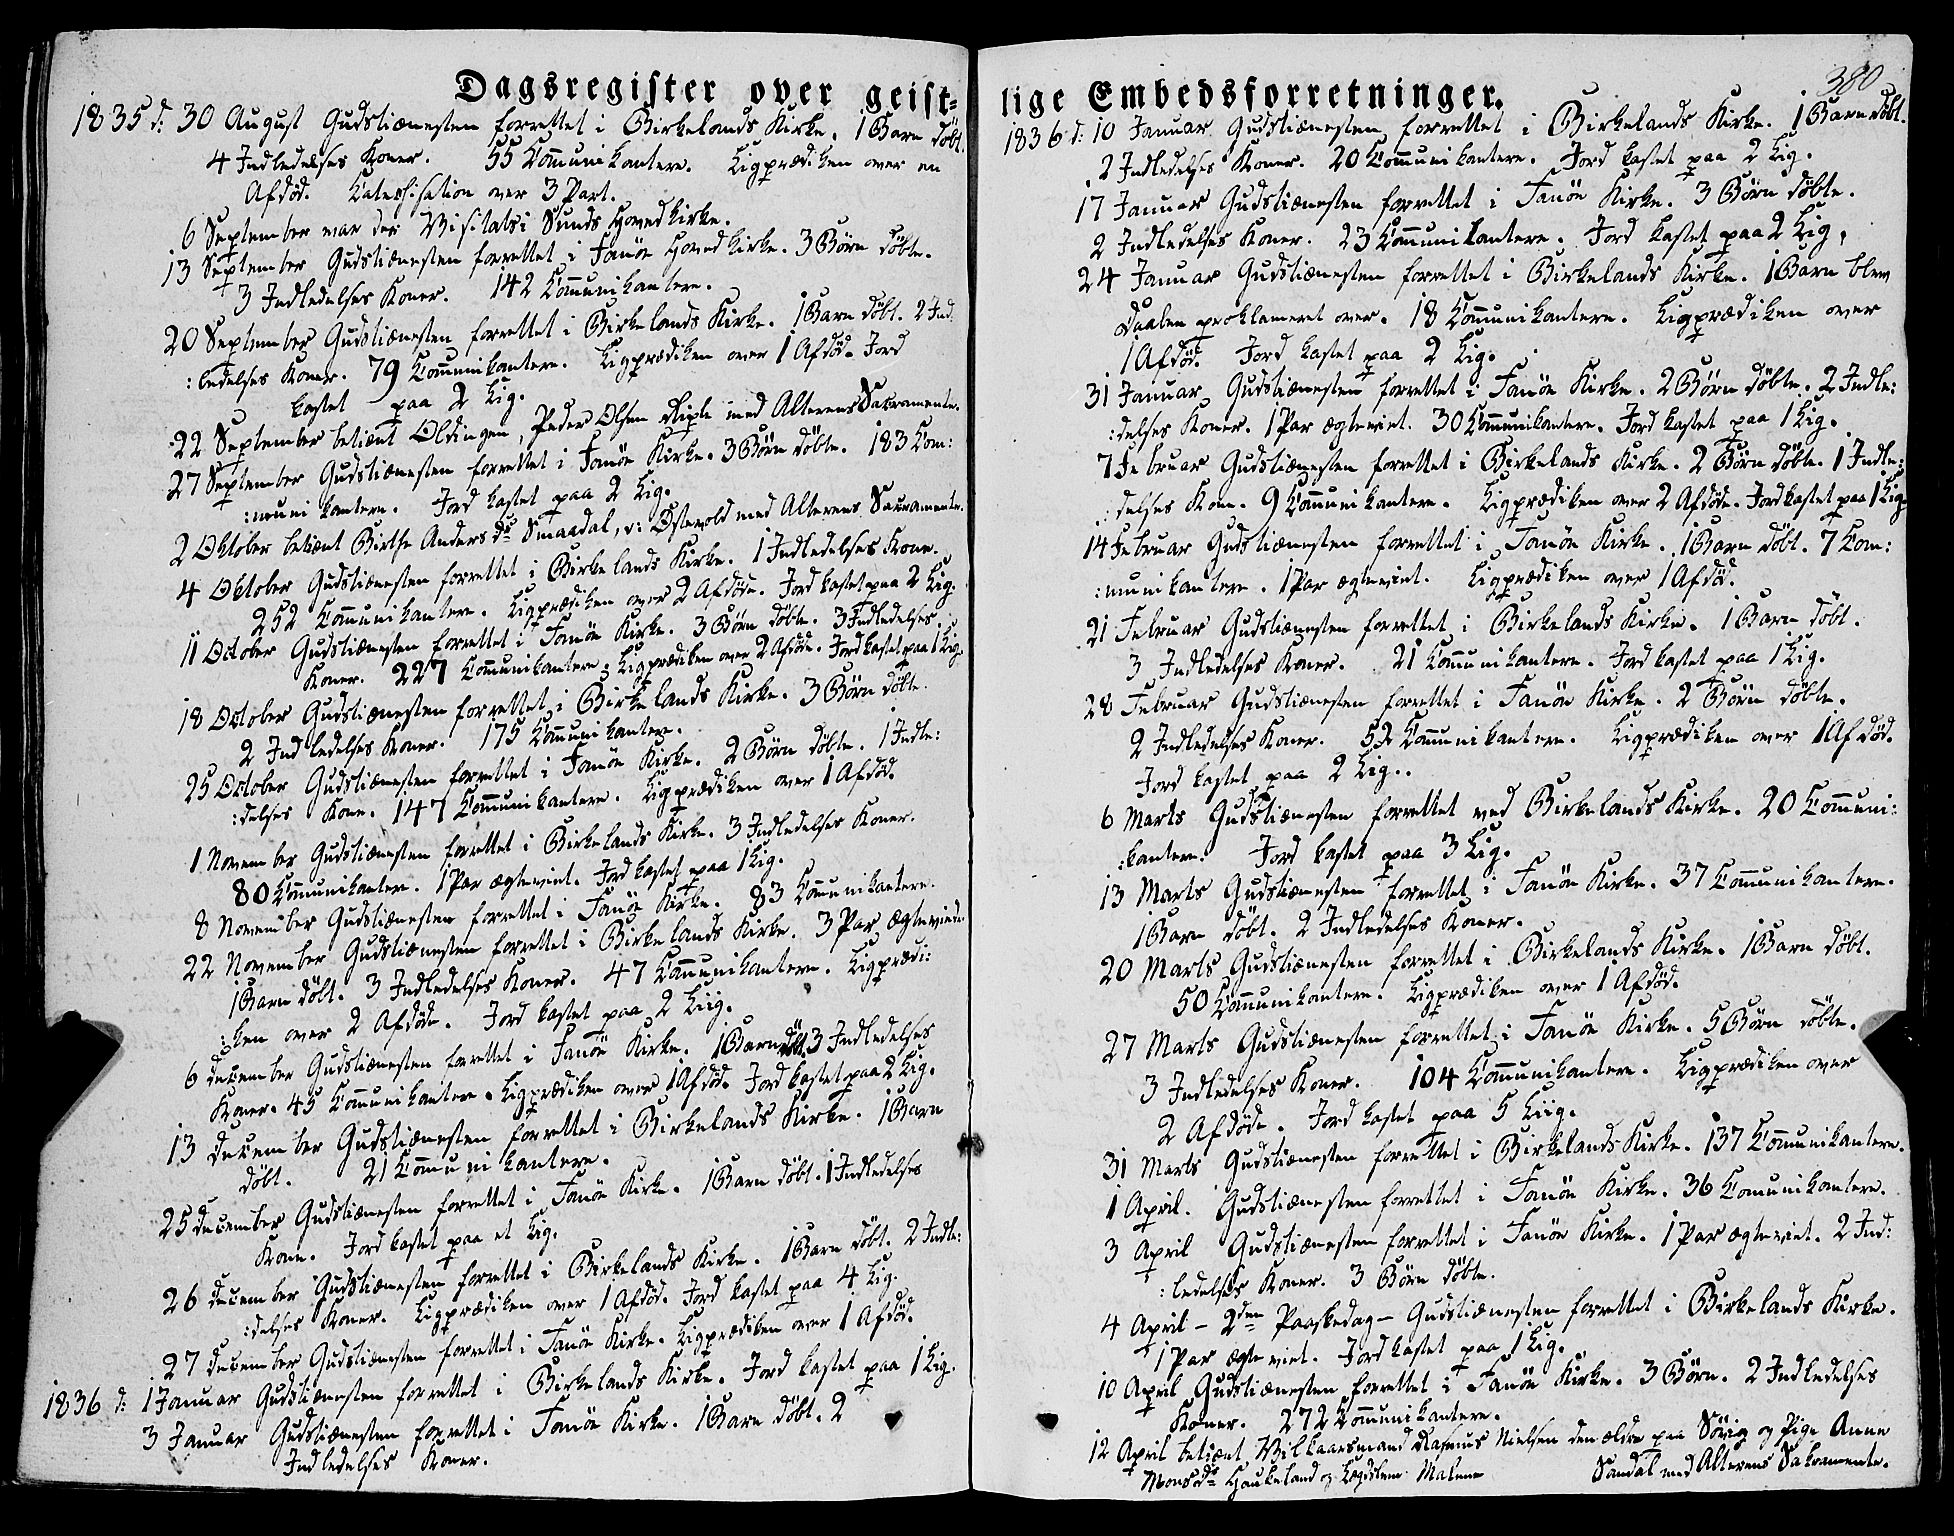 Dagsregister over geist=
1835 d: 30 August Gudstienesten forrettet i Birkelands Kirke. 1 Barn döbt.
4 Indledelses Koner. 55 Com̄unikantere. Ligprædiken over en
Afdød. Catechisation over 3 Part.
6 September var der Visitats i Sunds Hovedkirke.
13 September Gudstienesten forrettet i Fanöe Hovedkirke. 3 Börn döbte.
3 Indledelses Koner. 142 Com̄unikantere.
20 September Gudstienesten forrettet i Birkelands Kirke. 1 Barn döbt. 2 Ind
:ledelses Koner. 79 Com̄unikantere. Ligprædiken over 1 Afdød. Jord
kastet paa 2 Lig.
22 September betient Oldingen, Peder Olsen med Alterens Sacramente.
27 September Gudstienesten forrettet i Fanöe Kirke. 3 Börn döbte. 183 Com:
:munikantere. Jord kastet paa 2 Lig.
2 Oktober betient Birthe Anders dr Smaadal, v: Østevold med Alterens Sacramente.
4 Oktober Gudstienesten forrettet i Birkelands Kirke. 1 Indledelses Kone.
252 Com̄unikantere. Ligprædiken over 2 Afdøde. Jord kastet paa 2 Lig.
11 October Gudstienesten forrettet i Fanöe Kirke. 3 Börn döbte. 3 Indledelses
Koner. 227 Com̄unikantere. Ligprædiken over 2 Afdøde. Jord kastet paa 1 Lig.
18 October Gudstienesten forrettet i Birkelands Kirke. 3 Börn döbte.
2 Indledelses Koner. 175 Com̄unikantere.
25 October Gudstienesten forrettet i Fanöe Kirke. 2 Börn döbte. 1 Indle:
:delses Kone. 147 Com̄unikantere. Ligprædiken over 1 Afdød.
1 November Gudstienesten forrettet i Birkelands Kirke. 3 Indledelses Koner.
80 Com̄unikanter. 1 Par ægteviet. Jord kastet paa 1 Lig.
8 November Gudstienesten forrettet i Fanöe Kirke. 83 Com̄unikantere.
22 November Gudstienesten forrettet i Birkelands Kirke. 3 Par ægteviede.
1 Barn döbt. 3 Indledelses Koner. 47 Com̄unikantere. Ligprædi:
:ken over 2 Afdøde. Jord kastet paa 2 Liig.
6 December Gudstienesten forrettet i Fanöe Kirke. 1 Barn döbt. 3 Indledelses
Koner. 45 Com̄unikantere. Ligprædiken over 1 Afdød. Jord kastet paa 2 Lig.
13 December Gudstienesten forrettet i Birkelands Kirke. 1 Barn
döbt. 21 Com̄unikantere.
25 December Gudstienesten forrettet i Fanöe Kirke. 1 Barn döbt. 1 Indledelses
Kone. Jord kastet paa et Lig.
26 December Gudstienesten forrettet i Birkelands Kirke. 1 Barn döbt. 2 Indle:
:delses Koner. Ligprædiken over 1 Afdød. Jord kastet paa 4 Lig.
27 December Gudstienesten forrettet i Fanöe Kirke. Ligprædiken over 1 Afdød.
1836 d: 1 Januar Gudstienesten forrettet i Birkelands Kirke. Jord kastet paa 1 Lig.
3 Januar Gudstienesten forrettet i Fanöe Kirke. 1 Barn döbt. 2
Indledelses Koner.
380
lige Embedsforretninger.
1836 d: 10 Januar Gudstienesten forrettet i Birkelands Kirke. 1 Barn döbt.
2 Indledelses Koner. 20 Com̄unikantere. Jord kastet paa 2 Lig.
17 Januar Gudstienesten forrettet i Fanöe Kirke. 3 Börn döbte.
2 Indledelses Koner. 23 Com̄unikantere. Jord kastet paa 2 Lig.
24 Januar Gudstienesten forrettet i Birkelands Kirke. 1 Barn blev
Daaben proklameret over. 18 Com̄unikantere. Ligprædiken over
1 Afdød. Jord kastet paa 2 Lig.
31 Januar Gudstienesten forrettet i Fanöe Kirke. 2 Börn döbte. 2 Indle:
:delses Koner. 1 Par ægteviet. 30 Com̄unikantere. Jord kastet paa 1 Lig.
7 Februar Gudstienesten forrettet i Birkelands Kirke. 2 Börn döbte. 1 Indle:
:delses Kone. 9 Com̄unikantere. Ligprædiken over 2 Afdøde. Jord kastet paa 1 Lig.
14 Februar Gudstienesten forrettet i Fanöe Kirke. 1 Barn döbt. 7 Com:
:munikantere. 1 Par ægteviet. Ligprædiken over 1 Afdød.
21 Februar Gudstienesten forrettet i Birkelands Kirke. 1 Barn döbt.
3 Indledelses Koner. 21 Com̄unikantere. Jord kastet paa 1 Lig.
28 Februar Gudstienesten forrettet i Fanöe Kirke. 2 Börn döbte.
2 Indledelses Koner. 52 Com̄unikantere. Ligprædiken over 1 Afdød.
Jord kastet paa 2 Lig.
6 Marts Gudstienesten forrettet ved Birkelands Kirke. 20 Com̄uni:
:kantere. Jord kastet paa 3 Lig.
13 Marts Gudstienesten forrettet i Fanöe Kirke. 37 Com̄unikantere.
1 Barn döbt. 2 Indledelses Koner.
20 Marts Gudstienesten forrettet i Birkelands Kirke. 1 Barn döbt.
50 Com̄unikantere. Ligprædiken over 1 Afdød.
27 Marts Gudstienesten forrettet i Fanöe Kirke. 5 Börn döbte.
3 Indledelses Koner. 104 Com̄unikantere. Ligprædiken over
2 Afdøde. Jord kastet paa 5 Liig.
31 Marts Gudstienesten forrettet i Birkelands Kirke. 137 Com̄unikantere.
1 April. Gudstienesten forrettet i Fanöe Kirke. 36 Com̄unikantere.
3 April Gudstienesten forrettet i Fanöe Kirke. 1 Par ægteviet. 2 Ind:
:ledelses Koner. 3 Börn döbte.
4 April - 2den Paaskedag - Gudstienesten forrettet i Birkelands Kirke.
1 Par ægteviet. Jord kastet paa 1 Lig.
10 April Gudstienesten forrettet i Fanöe Kirke. 3 Börn. 2 Indledelses
Koner. 272 Com̄unikantere.
12 April betient Vilkaarsmand Rasmus Nielsen den ældre paa Sövig og Pige Anne
Mons dr Haukeland og Lægdslem Malene Sandal med Alterens Sakramente.